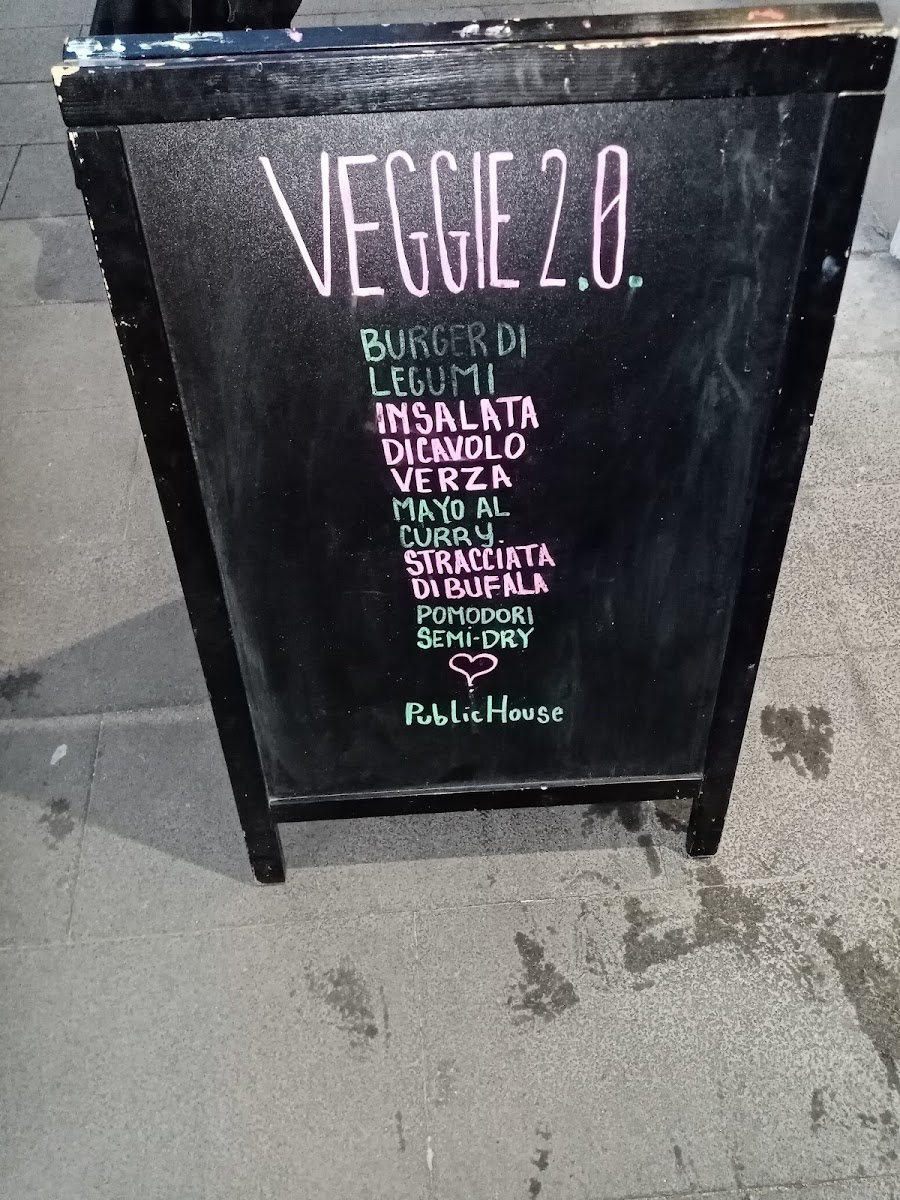 VEGGIE 2.0.
BURGER DI
LEGUMI
INSALATA
DI CAVOLO
VERZA
MAYO AL
CURRY.
STRACCIATA
DI BUFALA
POMODORI
SEMI-DRY
Public House